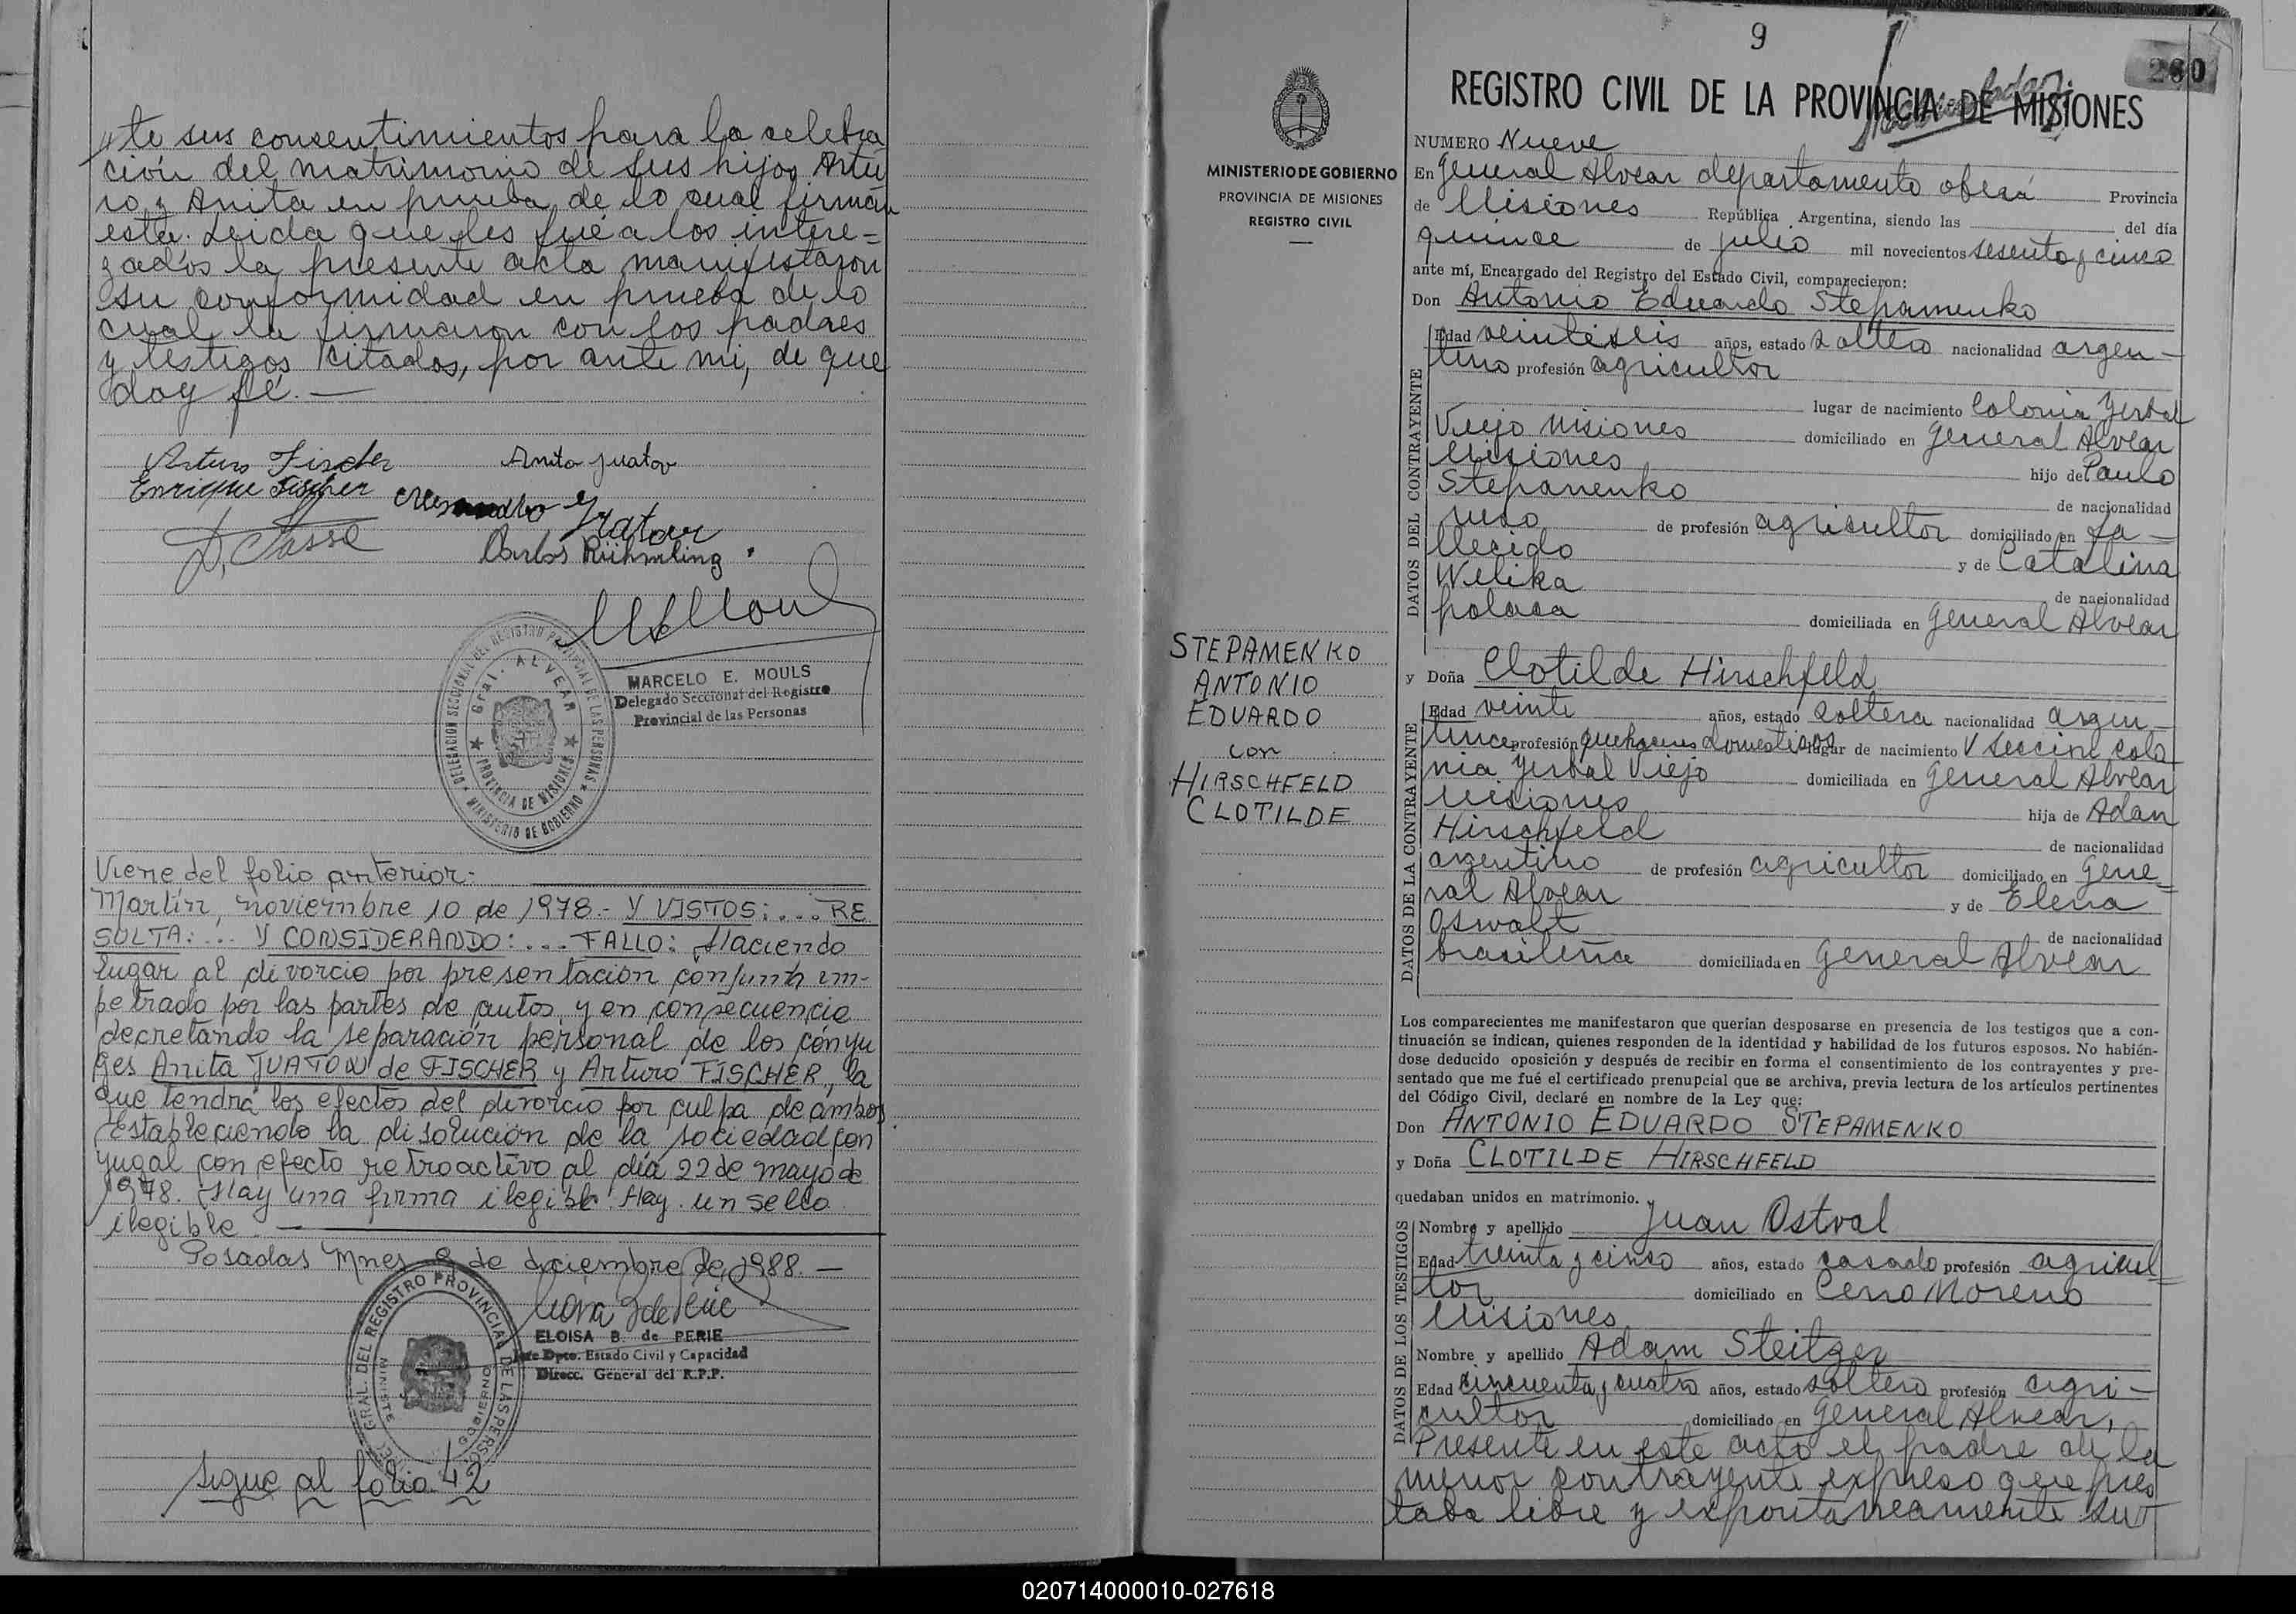 te sus consentimientos para la celebra
ción del matrimonio de sus hijos Artu
ro y Anita en prueba de lo cual firman
esta. Leida que les fué a los intere=
zados la presente acta manifestaron
su conformidad en prueba de lo
cual la firmaron con los padres
y testigos citados, por ante mi, de que
doy fé.—
Arturo Fischer Anita Juaton
Enrique Fischer
Carlos Rühmling
MARCELO E. MOULS
Delegado Seccional del Registro
Provincial de las Personas
DELEGACION SECCIONAL DEL REGISTRO PROVINCIAL DE LAS PERSONAS
Gral. ALVEAR
PROVINCIA DE MISIONES
MINISTERIO DE GOBIERNO
Viene del folio anterior:
Martín, noviembre 10 de 1978.- Y VISTOS:... RE
SULTA:... Y CONSIDERANDO:... FALLO: Haciendo
lugar al divorcio por presentación conjunta im-
petrado por las partes de autos, y en consecuencia
decretando la separación personal de los cónyu
ges Anita JUATON de FISCHER y Arturo FISCHER, la
que tendrá los efectos del divorcio por culpa de ambos.
Estableciendo la disolución de la sociedad con
yugal con efecto retroactivo al día 22 de mayo de
1978. Hay una firma ilegible. Hay un sello
ilegible.—
Posadas Mnes 9 de diciembre de 1988.—
ELOISA B. de PERIE
Jefe Dpto. Estado Civil y Capacidad
Direcc. General del R.P.P.
GRAL. DEL REGISTRO PROVINCIAL DE LAS PERSO
sigue al folio 42
9
280
REGISTRO CIVIL DE LA PROVINCIA DE MISIONES
MINISTERIO DE GOBIERNO
PROVINCIA DE MISIONES
REGISTRO CIVIL
NUMERO Nueve
En General Alvear departamento oberá Provincia
de Misiones República Argentina, siendo las del día
quince de julio mil novecientos sesenta y cinco
ante mí, Encargado del Registro del Estado Civil, comparecieron:
Don Antonio Eduardo Stepamenko
DATOS DEL CONTRAYENTE
Edad veintiseis años, estado soltero nacionalidad argen-
tino profesión agricultor
lugar de nacimiento Colonia Yerbal
Viejo Misiones domiciliado en General Alvear
Misiones hijo de Paulo
Stepanenko de nacionalidad
ruso de profesión agricultor domiciliado en fa-
llecido y de Catalina
Welika de nacionalidad
polaca domiciliada en General Alvear
STEPAMENKO
ANTONIO
EDUARDO
con
HIRSCHFELD
CLOTILDE
y Doña Clotilde Hirschfeld
DATOS DE LA CONTRAYENTE
Edad veinte años, estado soltera nacionalidad argen-
tina profesión quehaceres domesticos lugar de nacimiento V Seccion Colo
nia Yerbal Viejo domiciliada en General Alvear
Misiones hija de Adan
Hirschfeld de nacionalidad
argentino de profesión agricultor domiciliado en Gene=
ral Alvear y de Elena
Oswalt de nacionalidad
brasileña domiciliada en General Alvear
Los comparecientes me manifestaron que querían desposarse en presencia de los testigos que a con-
tinuación se indican, quienes responden de la identidad y habilidad de los futuros esposos. No habién-
dose deducido oposición y después de recibir en forma el consentimiento de los contrayentes y pre-
sentado que me fué el certificado prenupcial que se archiva, previa lectura de los artículos pertinentes
del Código Civil, declaré en nombre de la Ley que:
Don ANTONIO EDUARDO STEPAMENKO
y Doña CLOTILDE HIRSCHFELD
quedaban unidos en matrimonio.
DATOS DE LOS TESTIGOS
Nombre y apellido Juan Ostval
Edad treinta y cinco años, estado casado profesión agricul
tor domiciliado en Cerro Moreno
Misiones
Nombre y apellido Adam Steitzer
Edad cincuenta y cuatro años, estado soltero profesión agri-
cultor domiciliado en General Alvear,
Presente en este acto el padre de la
menor contrayente expreso que pres
taba libre y expontaneamente su
020714000010-027618